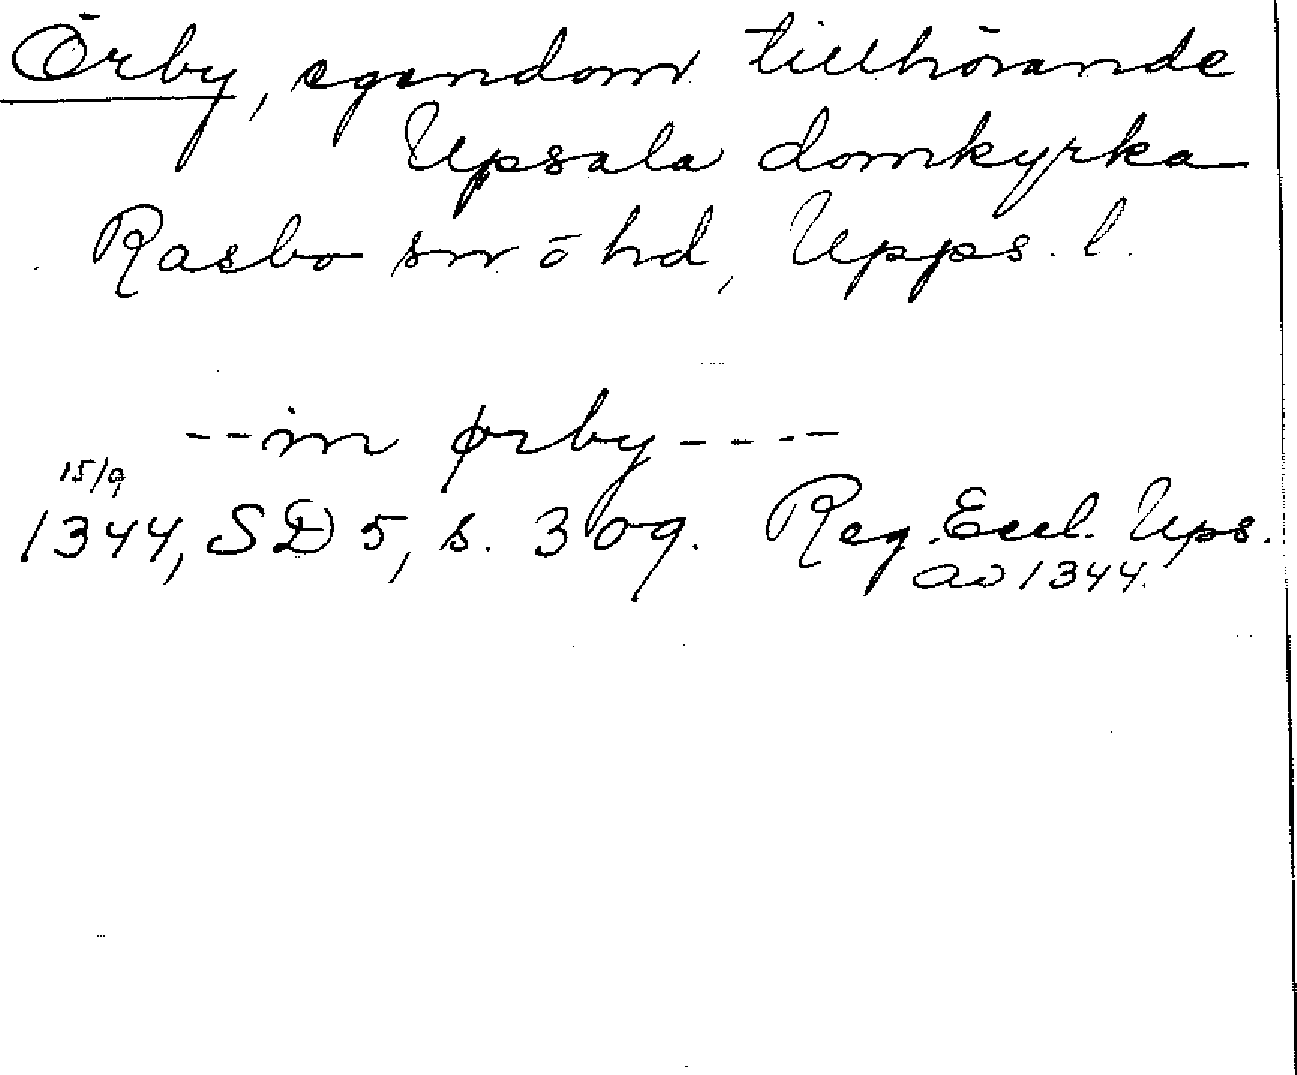 Örby, egendom tillhörande
Upsala domkyrka
Rasbo sn ö hd, Upps. l.
--in ørby----
15/9
1344, SD 5, s. 309. Reg. Eccl. Ups.
av 1344.